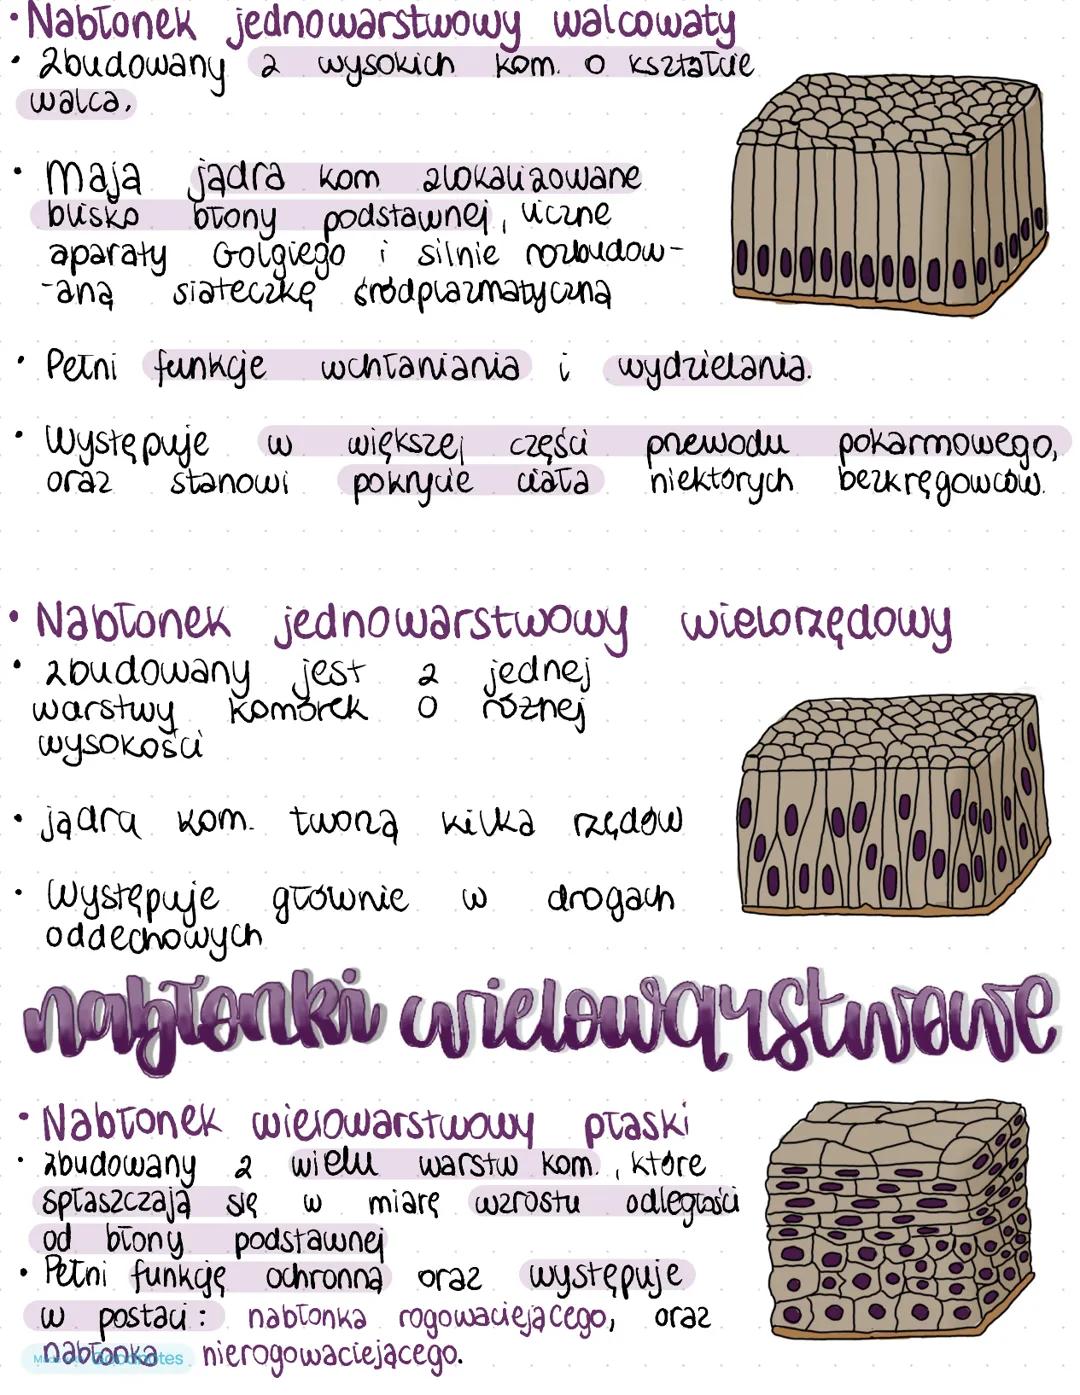 • Nabłonek jednowarstwowy walcowaty
• Zbudowany z wysokich kom. o kształcie
walca.
• Mają jądra kom zlokalizowane
blisko błony podstawnej, liczne
aparaty Golgiego i silnie rozbudow-
-aną siateczkę śródplazmatyczną
• Pełni funkcje wchłaniania i wydzielania.
• Występuje w większej części przewodu pokarmowego,
oraz stanowi pokrycie ciała niektórych bezkręgowców.
• Nabłonek jednowarstwowy wielorzędowy
• zbudowany jest z jednej
warstwy komórek o różnej
wysokości
• jądra kom. tworzą kilka rzędów
• Występuje głównie w drogach
oddechowych
nabłonki wielowarstwowe
• Nabłonek wielowarstwowy płaski
• zbudowany z wielu warstw kom., które
spłaszczają się w miarę wzrostu odległości
od błony podstawnej
• Pełni funkcję ochronną oraz występuje
w postaci: nabłonka rogowaciejącego, oraz
nabłonka nierogowaciejącego.
Goodnotes